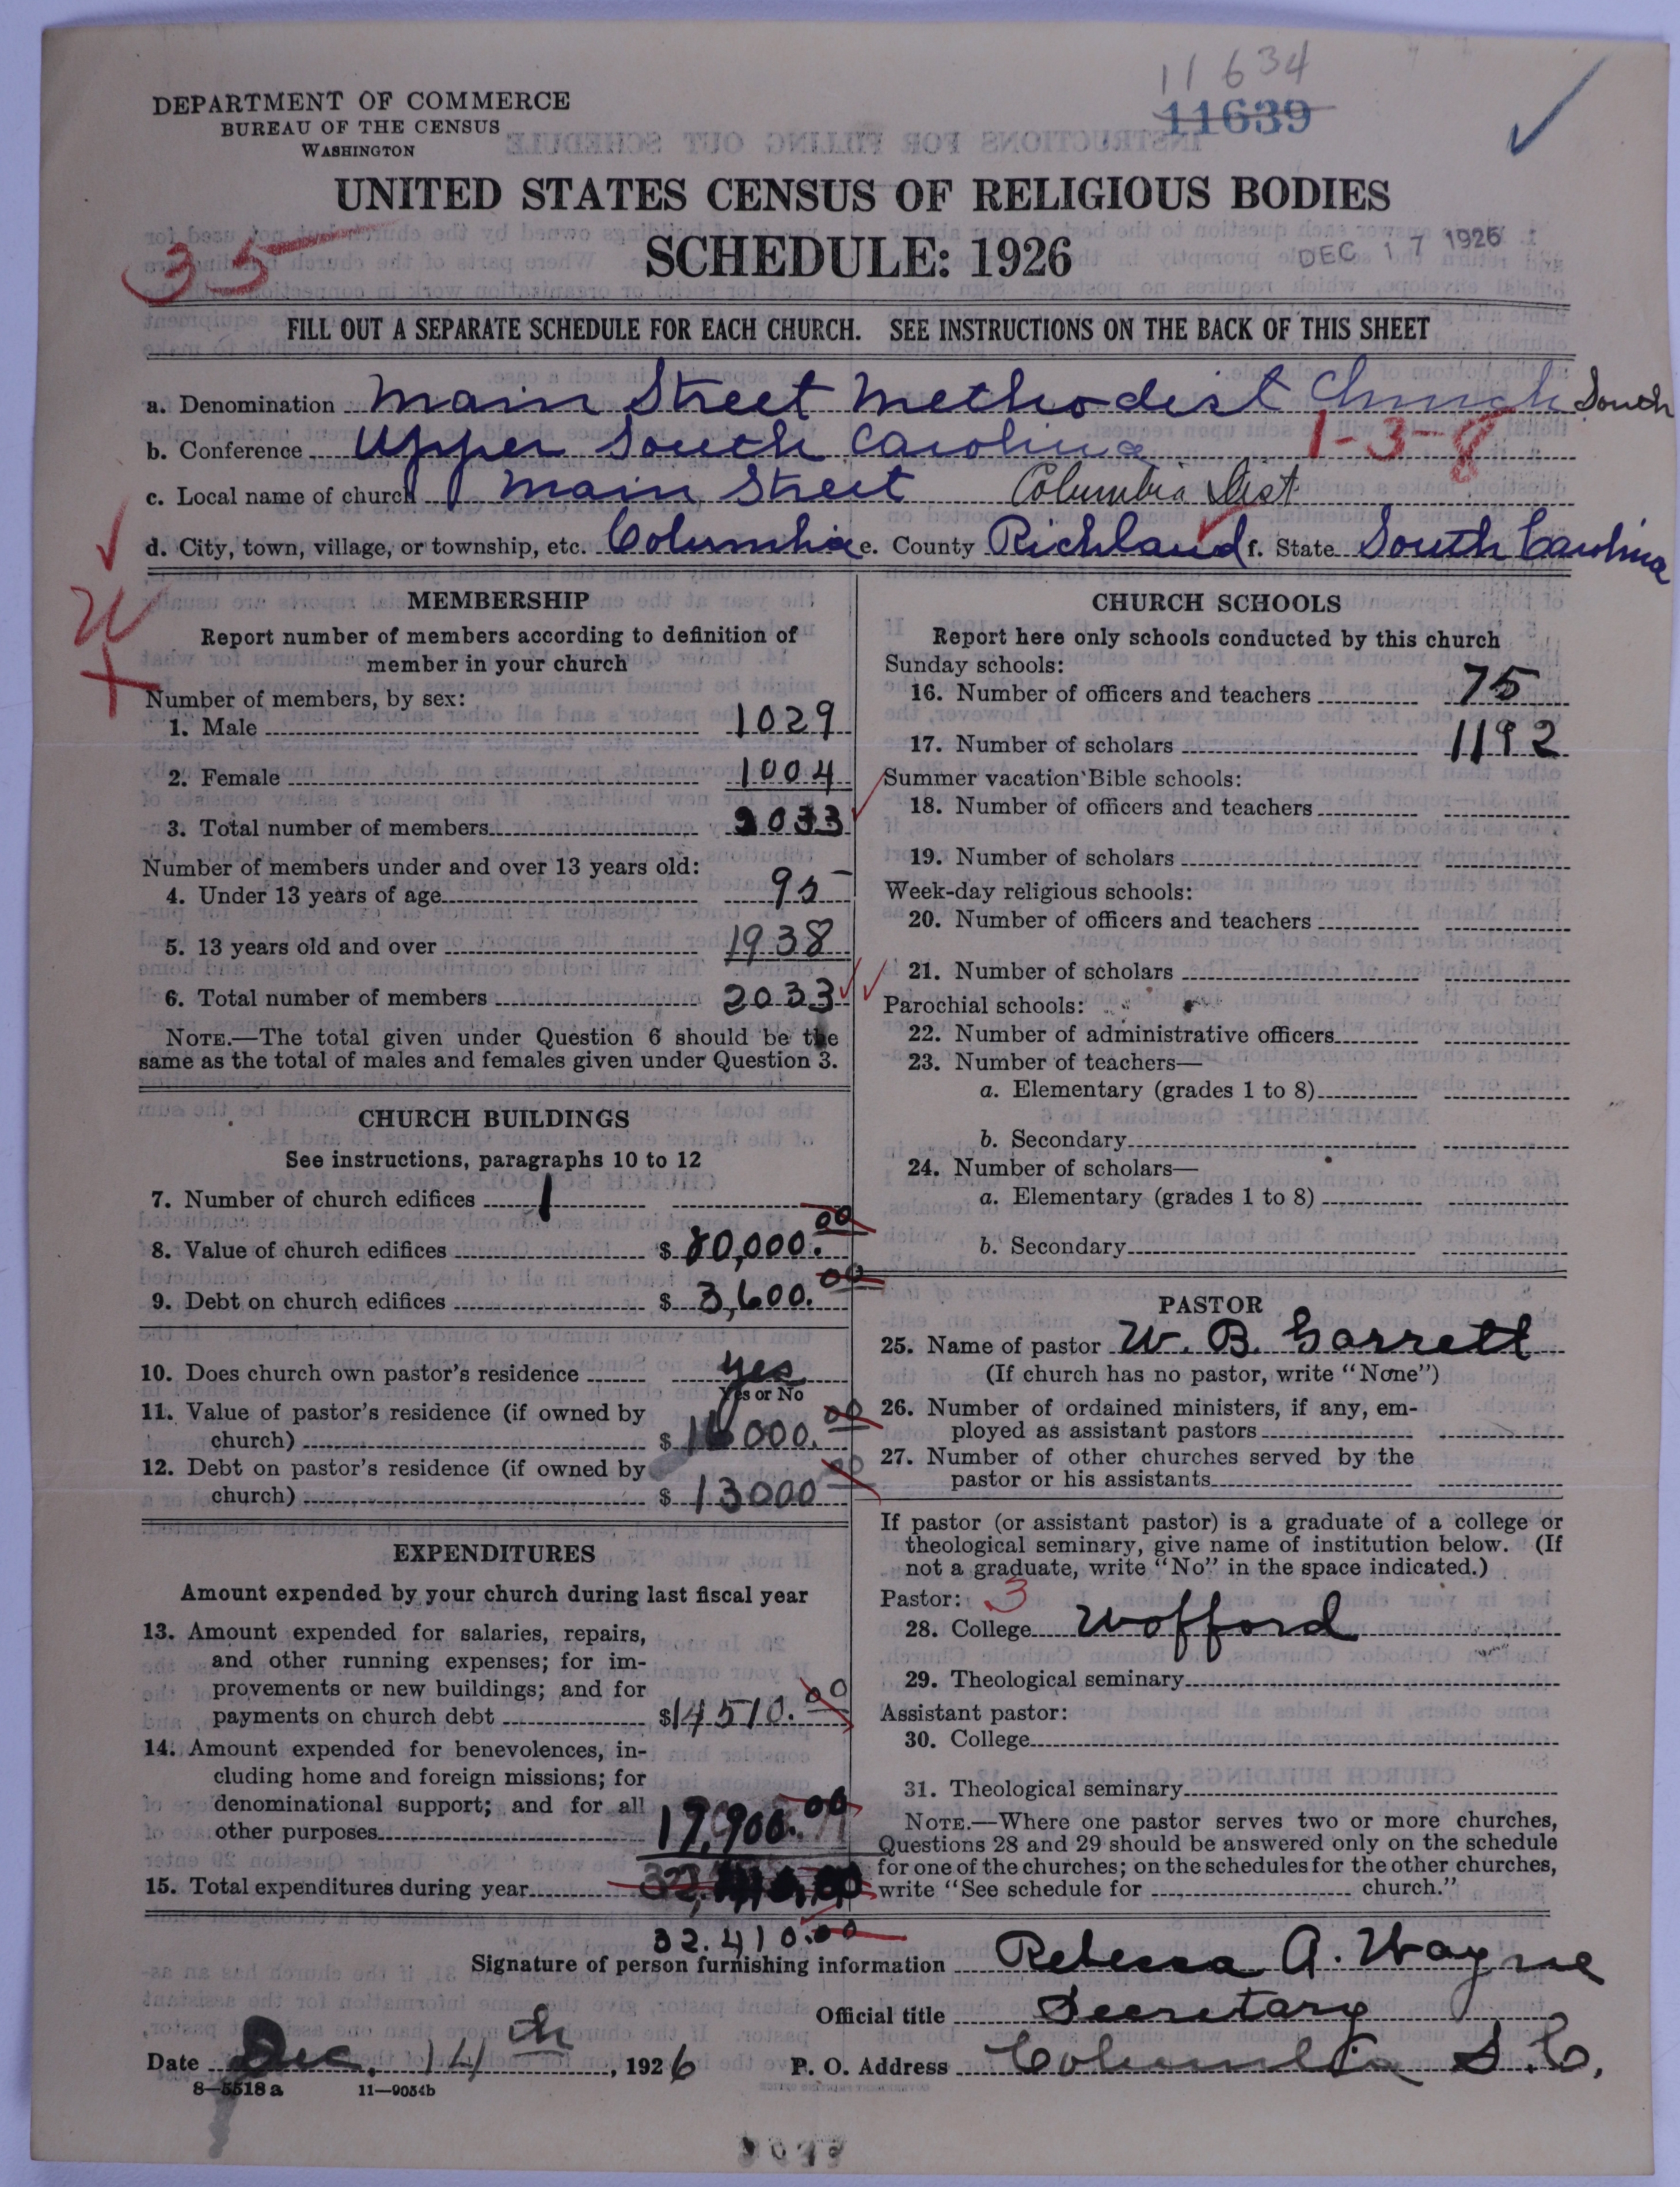 11634
11639
DEPARTMENT OF COMMERCE
BUREAU OF THE CENSUS
WASHINGTON
UNITED STATES CENSUS OF RELIGIOUS BODIES
SCHEDULE: 1926
DEC 17 1926
35
FILL OUT A SEPARATE SCHEDULE FOR EACH CHURCH. SEE INSTRUCTIONS ON THE BACK OF THIS SHEET
a. Denomination Main Street Methodist Church South
b. Conference Upper South Carolina 1-3-8
c. Local name of church Main Street Columbia Dist
d. City, town, village, or township, etc. Columbia e. County Richland f. State South Carolina
MEMBERSHIP
Report number of members according to definition of
member in your church
Number of members, by sex:
1. Male 1029
2. Female 1004
3. Total number of members 2033
Number of members under and over 13 years old:
4. Under 13 years of age 95
5. 13 years old and over 1938
6. Total number of members 2033
NOTE.—The total given under Question 6 should be the
same as the total of males and females given under Question 3.
CHURCH BUILDINGS
See instructions, paragraphs 10 to 12
7. Number of church edifices 1
8. Value of church edifices $ 80,000.00
9. Debt on church edifices $ 3,600.00
10. Does church own pastor's residence yes
Yes or No
11. Value of pastor's residence (if owned by
church) $ 000.00
12. Debt on pastor's residence (if owned by
church) $ 13000 00
EXPENDITURES
Amount expended by your church during last fiscal year
13. Amount expended for salaries, repairs,
and other running expenses; for im-
provements or new buildings; and for
payments on church debt $14510.00
14. Amount expended for benevolences, in-
cluding home and foreign missions; for
denominational support; and for all
other purposes 17,900.00
15. Total expenditures during year
32.410.00
CHURCH SCHOOLS
Report here only schools conducted by this church
Sunday schools:
16. Number of officers and teachers 75
17. Number of scholars 1192
Summer vacation Bible schools:
18. Number of officers and teachers
19. Number of scholars
Week-day religious schools:
20. Number of officers and teachers
21. Number of scholars
Parochial schools:
22. Number of administrative officers
23. Number of teachers—
a. Elementary (grades 1 to 8)
b. Secondary
24. Number of scholars—
a. Elementary (grades 1 to 8)
b. Secondary
PASTOR
25. Name of pastor W. B. Garrett
(If church has no pastor, write "None")
26. Number of ordained ministers, if any, em-
ployed as assistant pastors
27. Number of other churches served by the
pastor or his assistants
If pastor (or assistant pastor) is a graduate of a college or
theological seminary, give name of institution below. (If
not a graduate, write "No" in the space indicated.)
Pastor: 3
28. College Wofford
29. Theological seminary
Assistant pastor:
30. College
31. Theological seminary
NOTE.—Where one pastor serves two or more churches,
Questions 28 and 29 should be answered only on the schedule
for one of the churches; on the schedules for the other churches,
write "See schedule for church."
Signature of person furnishing information Rebecca A. Wayne
Official title Secretary
Date Dec. 14th, 1926 P. O. Address Columbia S.C.
8—5518 a 11—9054b